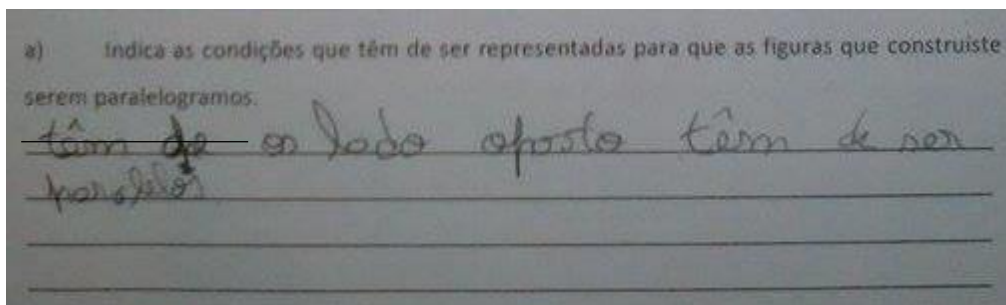 a) Indica as condições que têm de ser representadas para que as figuras que construiste
serem paralelogramos.
têm de os lado oposto têm de ser
paralelos